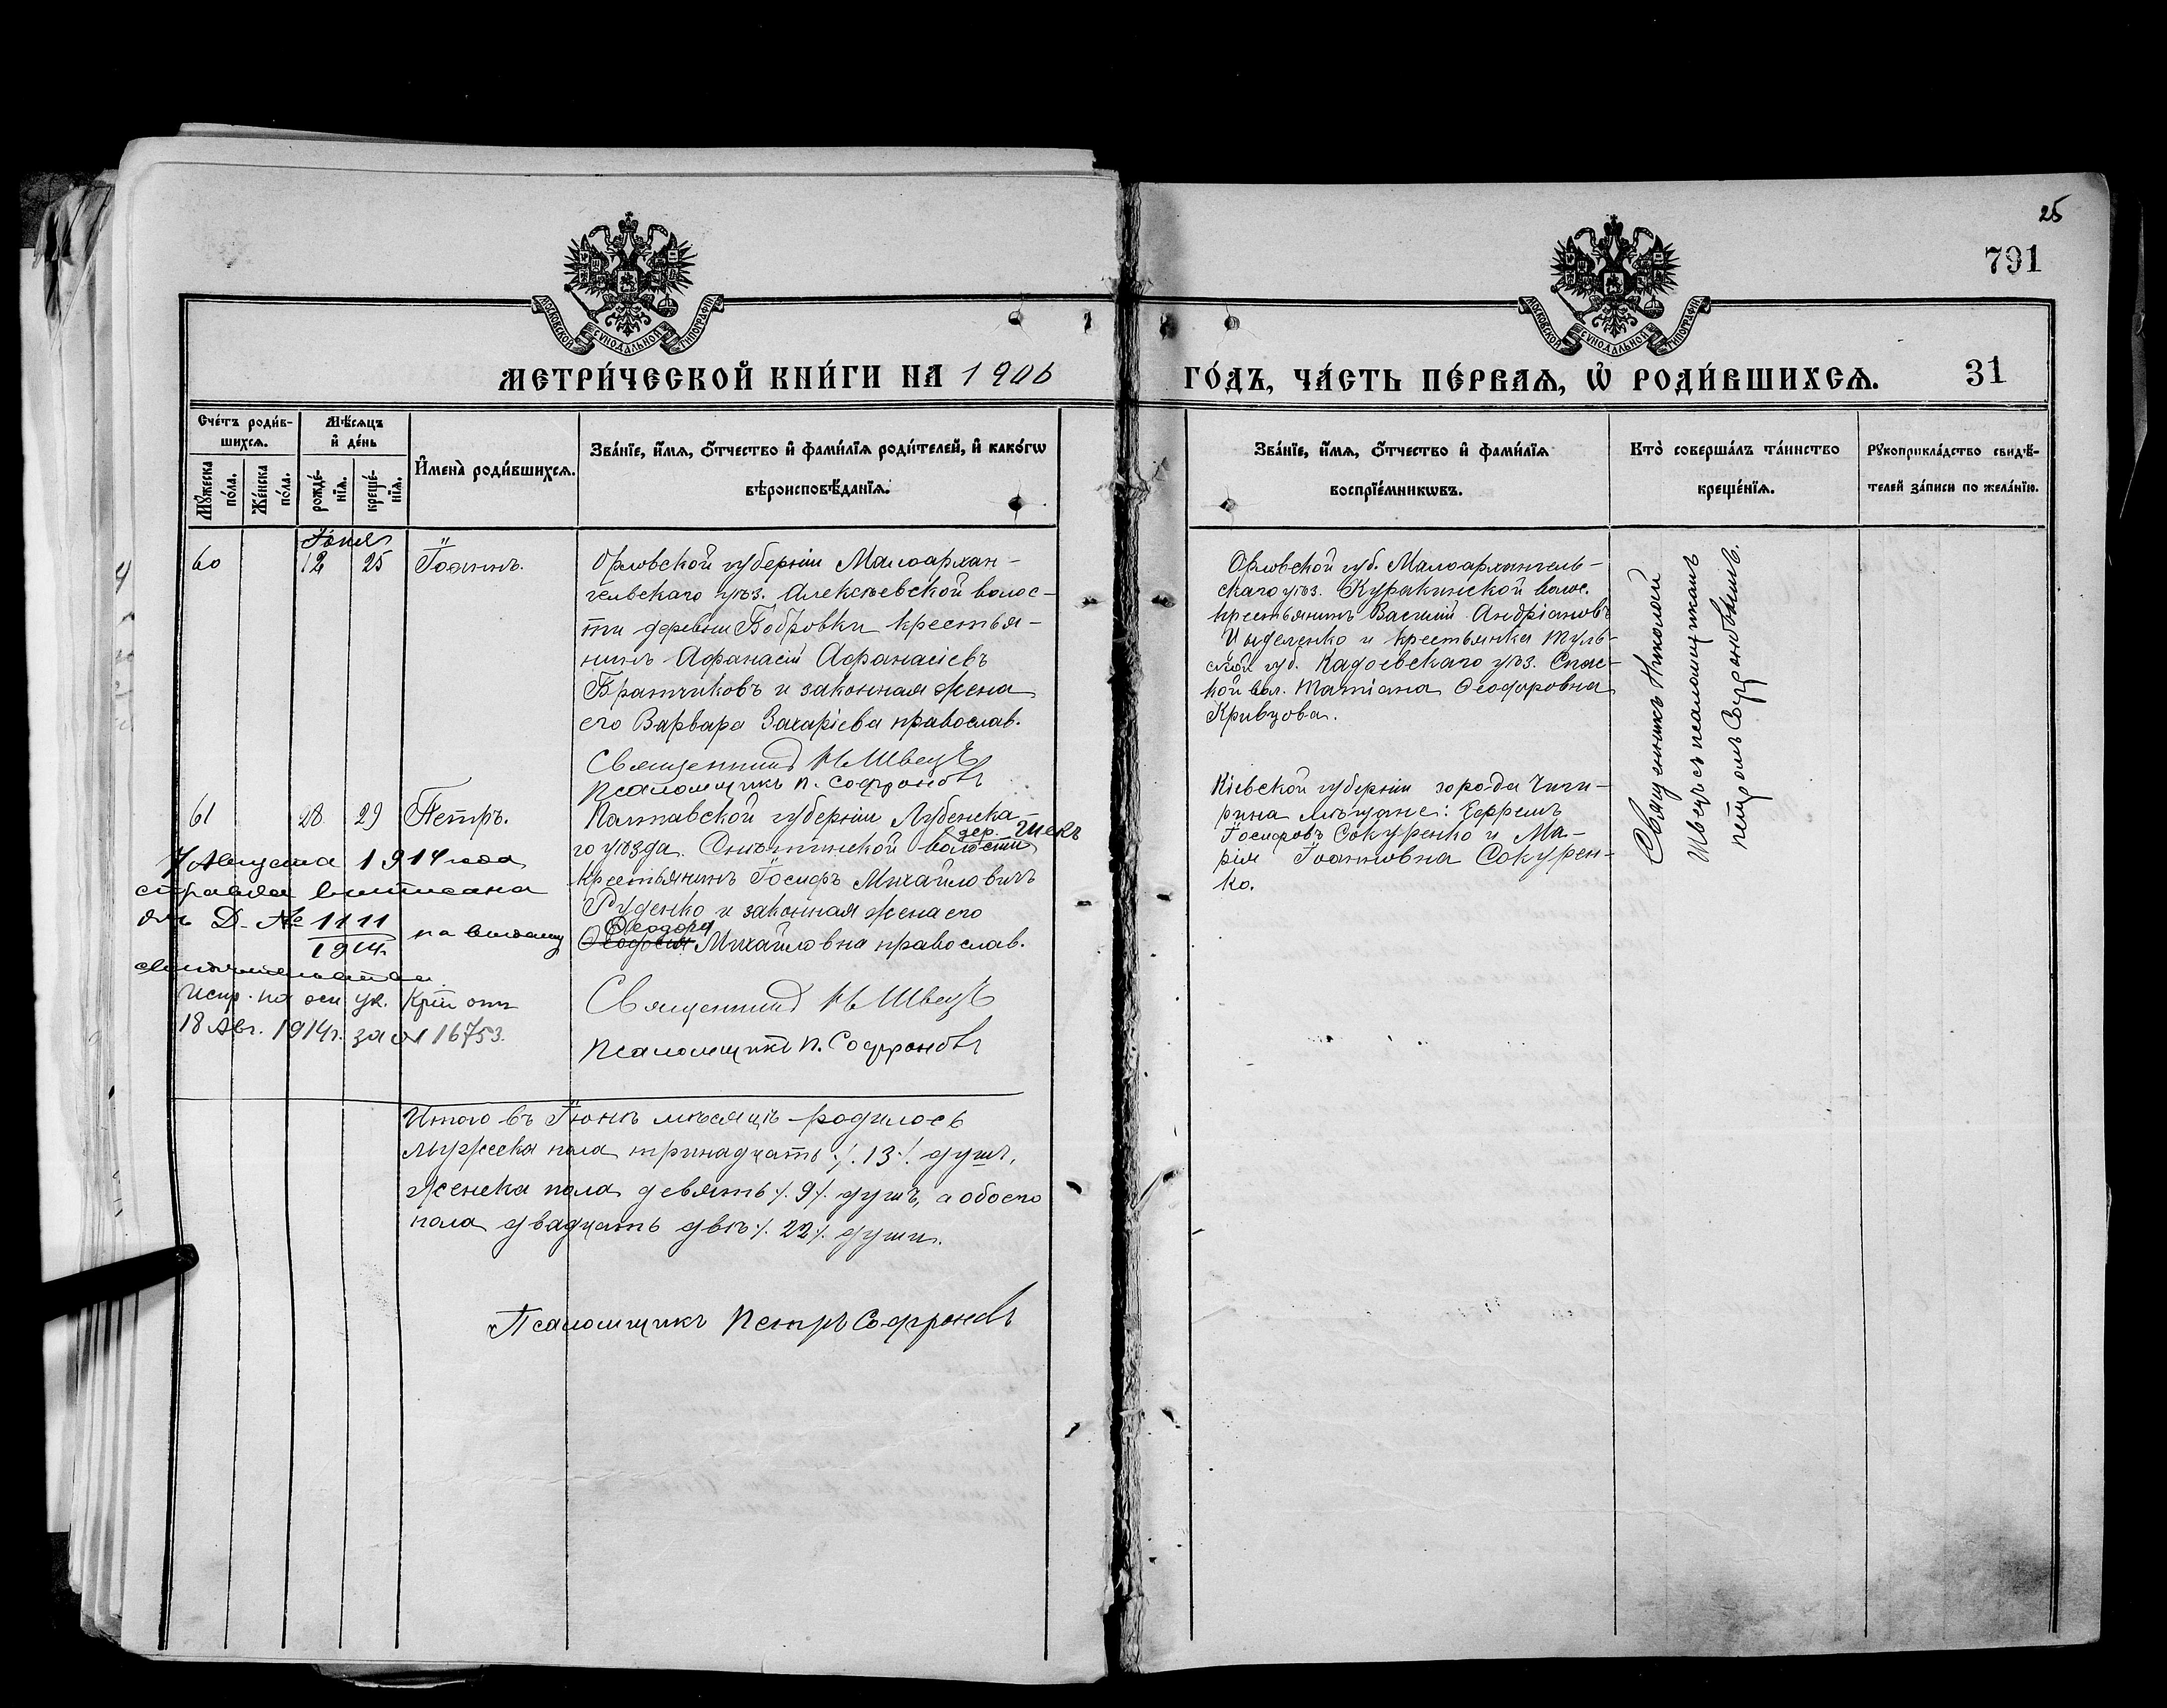 25
791
МОСКОВСКОЙ СѴНОДАЛЬНОЙ ТИПОГРАФІИ
МОСКОВСКОЙ СѴНОДАЛЬНОЙ ТИПОГРАФІИ
МЕТРИ́ЧЕСКОЙ КНИ́ГИ НА 1906 ГО́ДЪ, ЧА́СТЬ ПЕ́РВАѦ, Ѡ҆ РОДИ́ВШИХСѦ. 31
Сче́тъ роди́в-
шихсѧ.
Мѣ́сѧцъ
и҆ де́нь
И҆мена̀ роди́вшихсѧ.
Зва́нїе, и҆́мѧ, ѻ҆́тчество и҆ фами́лїѧ роди́телей, и҆ како́гѡ
вѣроисповѣ́данїѧ.
Мꙋ́жеска по́ла.
Же́нска по́ла.
рожде́-нїѧ.
креще́-нїѧ.
Зва́нїе, и҆́мѧ, ѻ҆́тчество и҆ фами́лїѧ
воспрїе́мникѡвъ.
Кто̀ соверша́лъ та́инство
креще́нїѧ.
Рꙋкоприкла́дство свидѣ́-
телей за́писи по жела́нїю.
Іюня
60 12 25 Іоаннъ.
Орловской губерніи Малоархан-
гельскаго уѣз. Алексѣевской волос-
ти деревни Бобровки крестья-
нинъ Афанасій Афанасіевъ
Братчиковъ и законная жена
его Варвара Захаріева православ.
Священникъ Н. Швецъ
Псаломщикъ П. Софроновъ
Орловской губ. Малоархангель-
скаго уѣз. Куракинской волос.
крестьянинъ Василій Андріановъ
и крестьянка Туль-
ской губ. уѣз. Спас-
кой вол. Татіана Ѳеодоровна
Кривцова.
Священникъ Николай
Швецъ съ псаломщикомъ
Петромъ Софроновымъ.
61 28 29 Петръ.
Полтавской губерніи Лубенска-
го уѣзда. волости
дер.
крестьянинъ Іосифъ Михайловичъ
Руденко и законная жена его
Ѳеодора
Ѳеодосія Михайловна православ.
Священникъ Н. Швецъ
Псаломщикъ П. Софроновъ
Кіевской губерніи города Чиги-
рина мѣщане: Ефремъ
Іосифовъ Сокуренко и Ма-
рія Іоанновна Сокурен-
ко.
7 Августа 1914 года
справка выписана
Д. № 1111
1914
на выдачу
свидѣтельства.
Испр. на осн. ук. отъ
18 Авг. 1914г. за № 16753.
Итого въ Іюнѣ мѣсяцѣ родилось
мужеска пола тринадцать ./. 13 ./. душъ,
женска пола девять ./. 9 ./. душъ, а обоего
пола двадцать двѣ ./. 22 ./. души.
Псаломщикъ Петръ Софроновъ